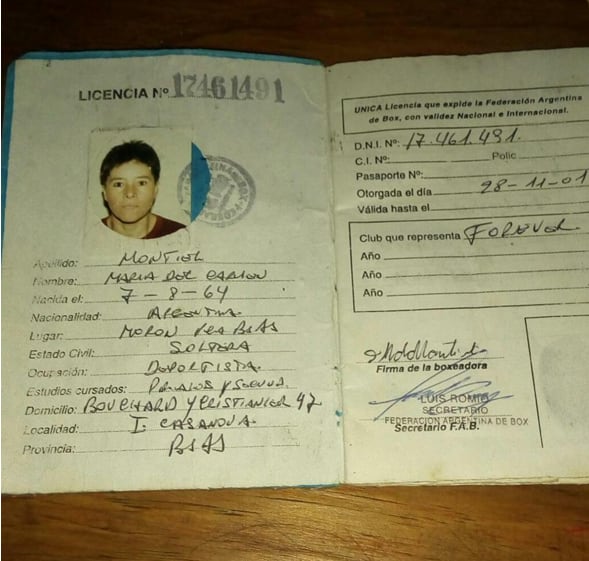 LICENCIA Nº 17461491
Apellido: MONTIEL
Nombre: MARIA DEL CARMEN
Nacida el: 7 - 8 - 64
Nacionalidad: ARGENTINA
Lugar: MORON BS AS
Estado Civil: SOLTERA
Ocupación: DEPORTISTA
Estudios cursados:
Domicilio: BOUCHARD Y CRISTIANIER 47
Localidad: I. CASANOVA
Provincia: BS AS
UNICA Licencia que expide la Federación Argentina
de Box, con validez Nacional e Internacional.
D.N.I. Nº: 17.461.491.
C.I. Nº: Polic
Pasaporte Nº:
Otorgada el día 28-11-01
Válida hasta el
Club que representa
Año
Año
Año
Firma de la boxeadora
LUIS ROMIO
SECRETARIO
FEDERACION ARGENTINA DE BOX
Secretario F.A.B.